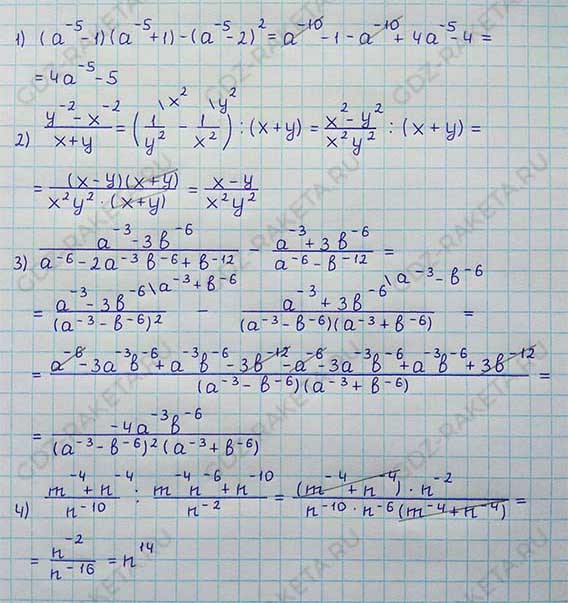 1) (a⁻⁵-1)(a⁻⁵+1)-(a⁻⁵-2)² = a⁻¹⁰-1-a⁻¹⁰+4a⁻⁵-4=
= 4a⁻⁵-5
2) (y⁻²-x⁻²)/(x+y) = (1/y² \x² - 1/x² \y²) : (x+y) = (x²-y²)/(x²y²) : (x+y) =
= ((x-y)(x+y))/(x²y²·(x+y)) = (x-y)/(x²y²)
3) (a⁻³-3b⁻⁶)/(a⁻⁶-2a⁻³b⁻⁶+b⁻¹²) - (a⁻³+3b⁻⁶)/(a⁻⁶-b⁻¹²) =
= (a⁻³-3b⁻⁶)/((a⁻³-b⁻⁶)²) \a⁻³+b⁻⁶ - (a⁻³+3b⁻⁶)/((a⁻³-b⁻⁶)(a⁻³+b⁻⁶)) \a⁻³-b⁻⁶ =
= (a⁻⁶-3a⁻³b⁻⁶+a⁻³b⁻⁶-3b⁻¹²-a⁻⁶-3a⁻³b⁻⁶+a⁻³b⁻⁶+3b⁻¹²)/((a⁻³-b⁻⁶)(a⁻³+b⁻⁶)) =
= (-4a⁻³b⁻⁶)/((a⁻³-b⁻⁶)²(a⁻³+b⁻⁶))
4) (m⁻⁴+n⁻⁴)/n⁻¹⁰ : (m⁻⁴n⁻⁶+n⁻¹⁰)/n⁻² = ((m⁻⁴+n⁻⁴)·n⁻²)/(n⁻¹⁰·n⁻⁶(m⁻⁴+n⁻⁴)) =
= n⁻²/n⁻¹⁶ = n¹⁴
GDZ-RAKETA.RU